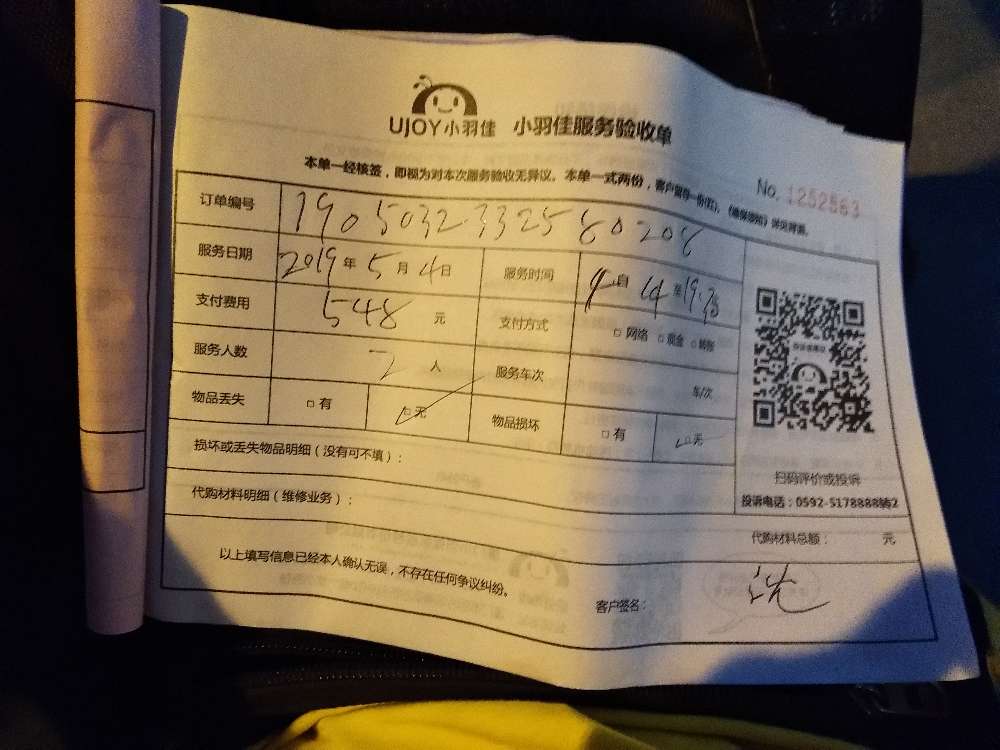 UJOY小羽佳 小羽佳服务验收单
本单一经核签，即视为对本次服务验收无异议。本单一式两份，客户留存一份(红)，《维保须知》详见背面。
No. 1252563
订单编号 1905032332580208
服务日期 2019年5月4日 服务时间 自14至19:75
支付费用 548元 支付方式 □网络 □现金 □转账
服务人数 2人 服务车次 车次
物品丢失 □有 □无 物品损坏 □有 □无
损坏或丢失物品明细（没有可不填）：
扫码评价或投诉
投诉电话：0592-5178888转2
代购材料明细（维修业务）： 代购材料总额： 元
以上填写信息已经本人确认无误，不存在任何争议纠纷。 客户签名：